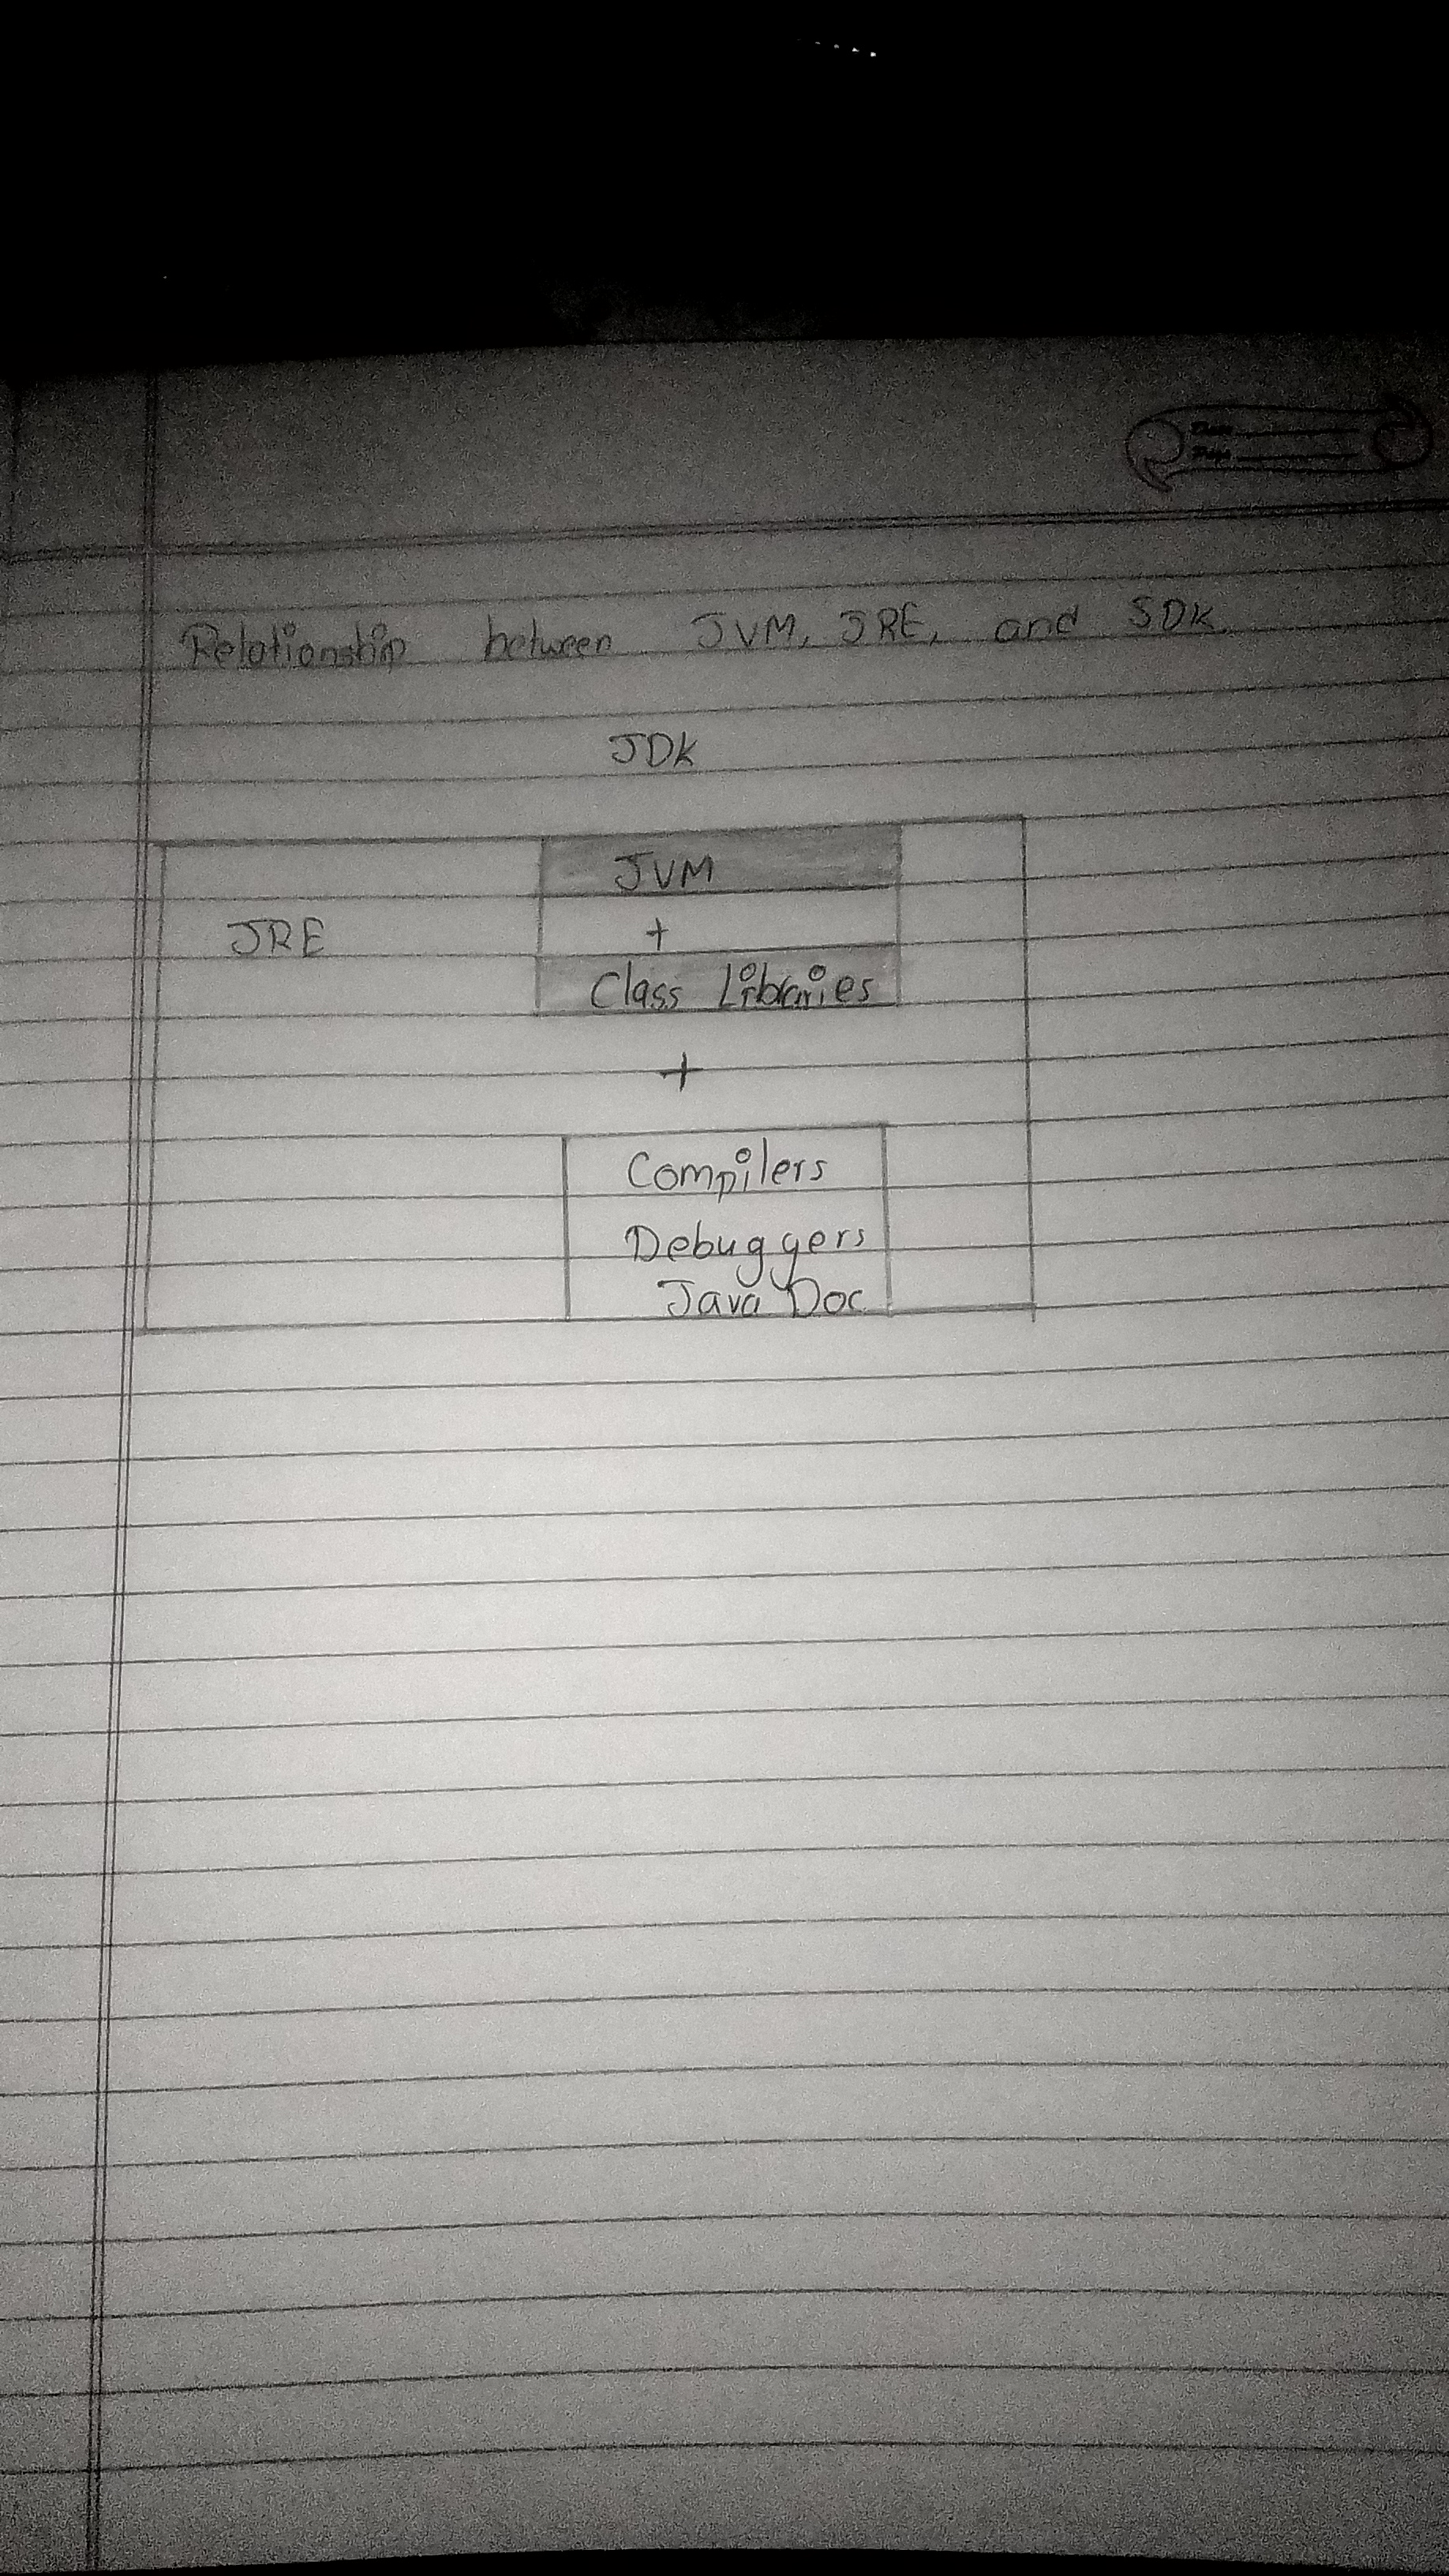 Date
Page
Relationship between JVM, JRE, and SDK.
JDK
JVM
JRE
+
Class Libraries
+
Compilers
Debuggers
Java Doc